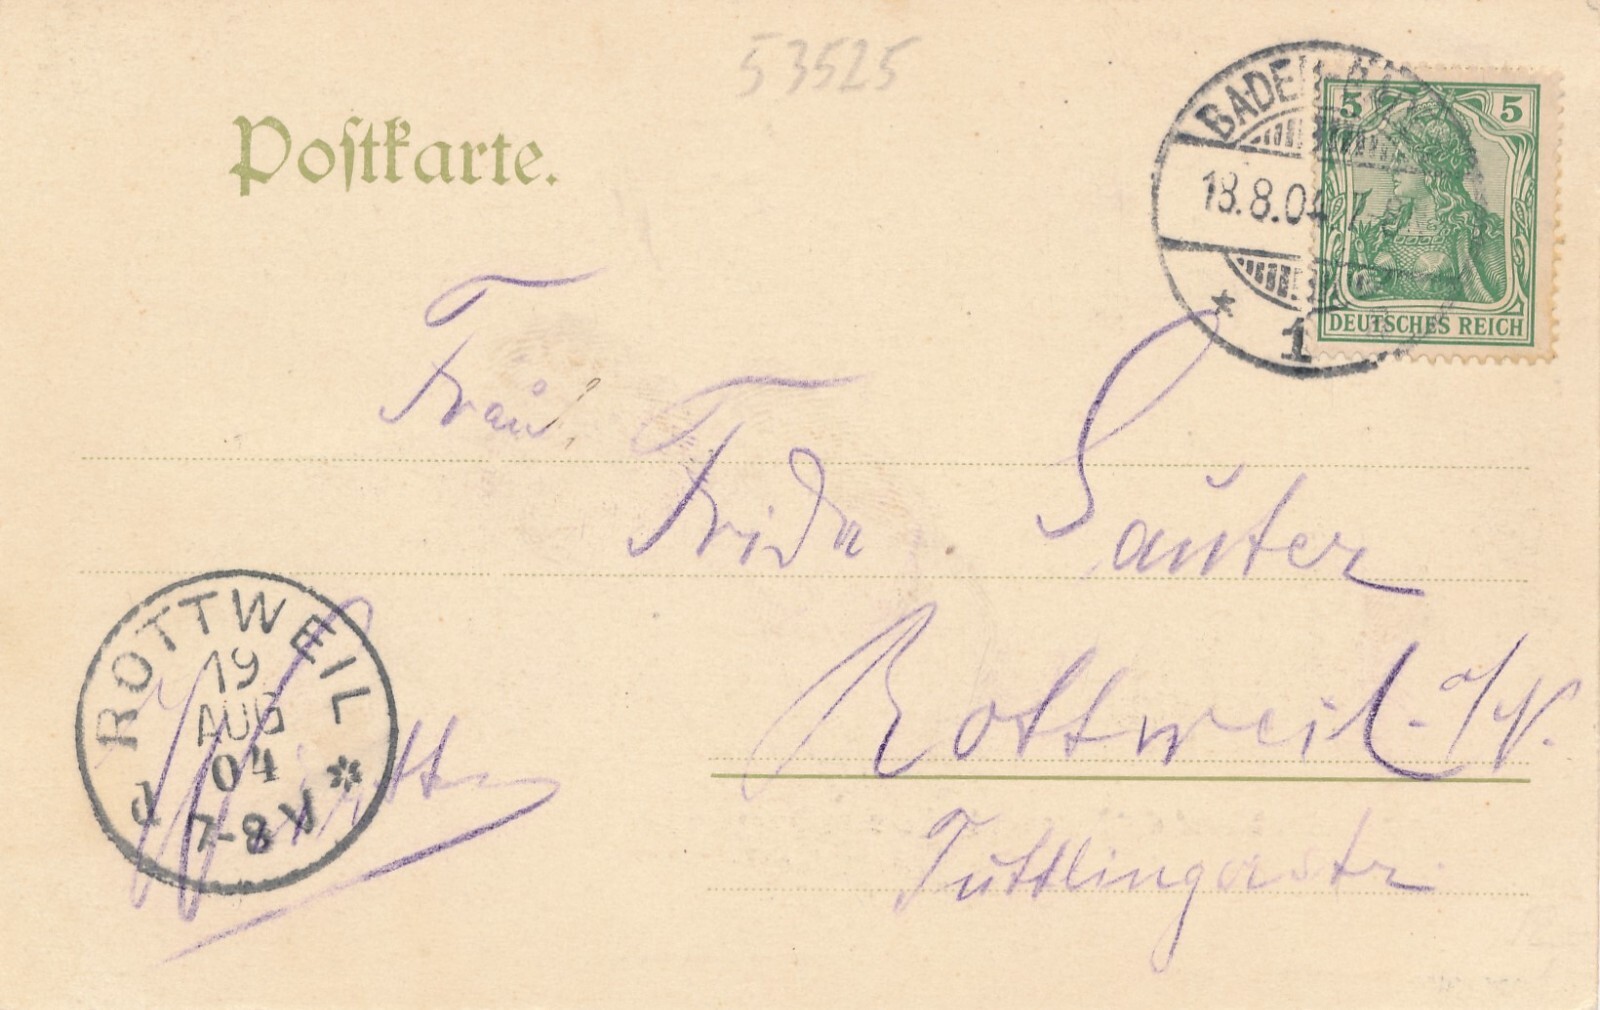 53525
Postkarte.
BADEN-BADEN
18.8.04 7-8
* 1
5 5
DEUTSCHES REICH
Fräul.
Frida Sauter
Rottweil a/N.
Tuttlingerstr.
ROTTWEIL
19
AUG
04
7-8 V